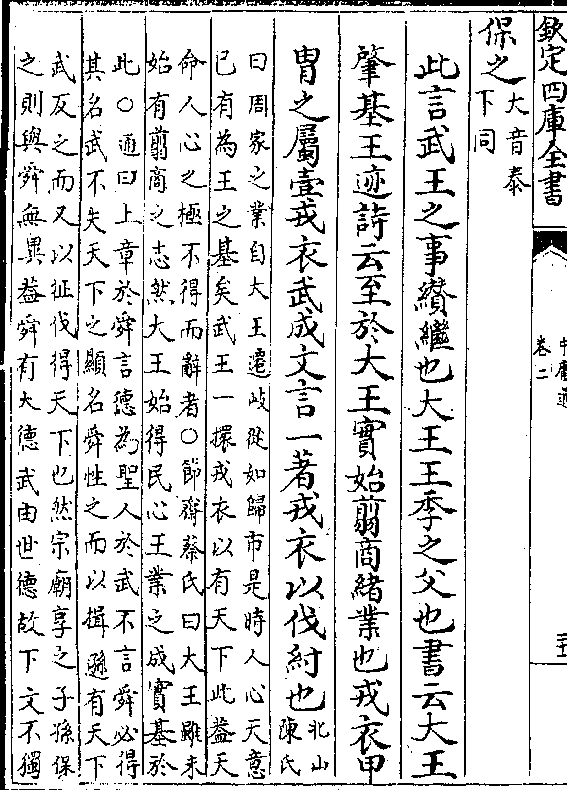 欽定四庫全書
中庸通
卷二
保之
大音泰
下同
此言武王之事纘繼也大王王季之父也書云大王
肇基王迹詩云至於大王實始翦商緒業也戎衣甲
胄之屬壹戎衣武成文言一著戎衣以伐紂也
北山
陳氏
曰周家之業自大王遷岐從如歸市是時人心天意
已有為王之基矣武王一擐戎衣以有天下此蓋天
命人心之極不得而辭者○節齋蔡氏曰大王雖未
始有翦商之志然大王始得民心王業之成實基於
此○通曰上章於舜言德為聖人於武不言舜必得
其名武不失天下之顯名舜性之而以揖遜有天下
武反之而又以征伐得天下也然宗廟享之子孫保
之則與舜無異蓋舜有大德武由世德故下文不獨